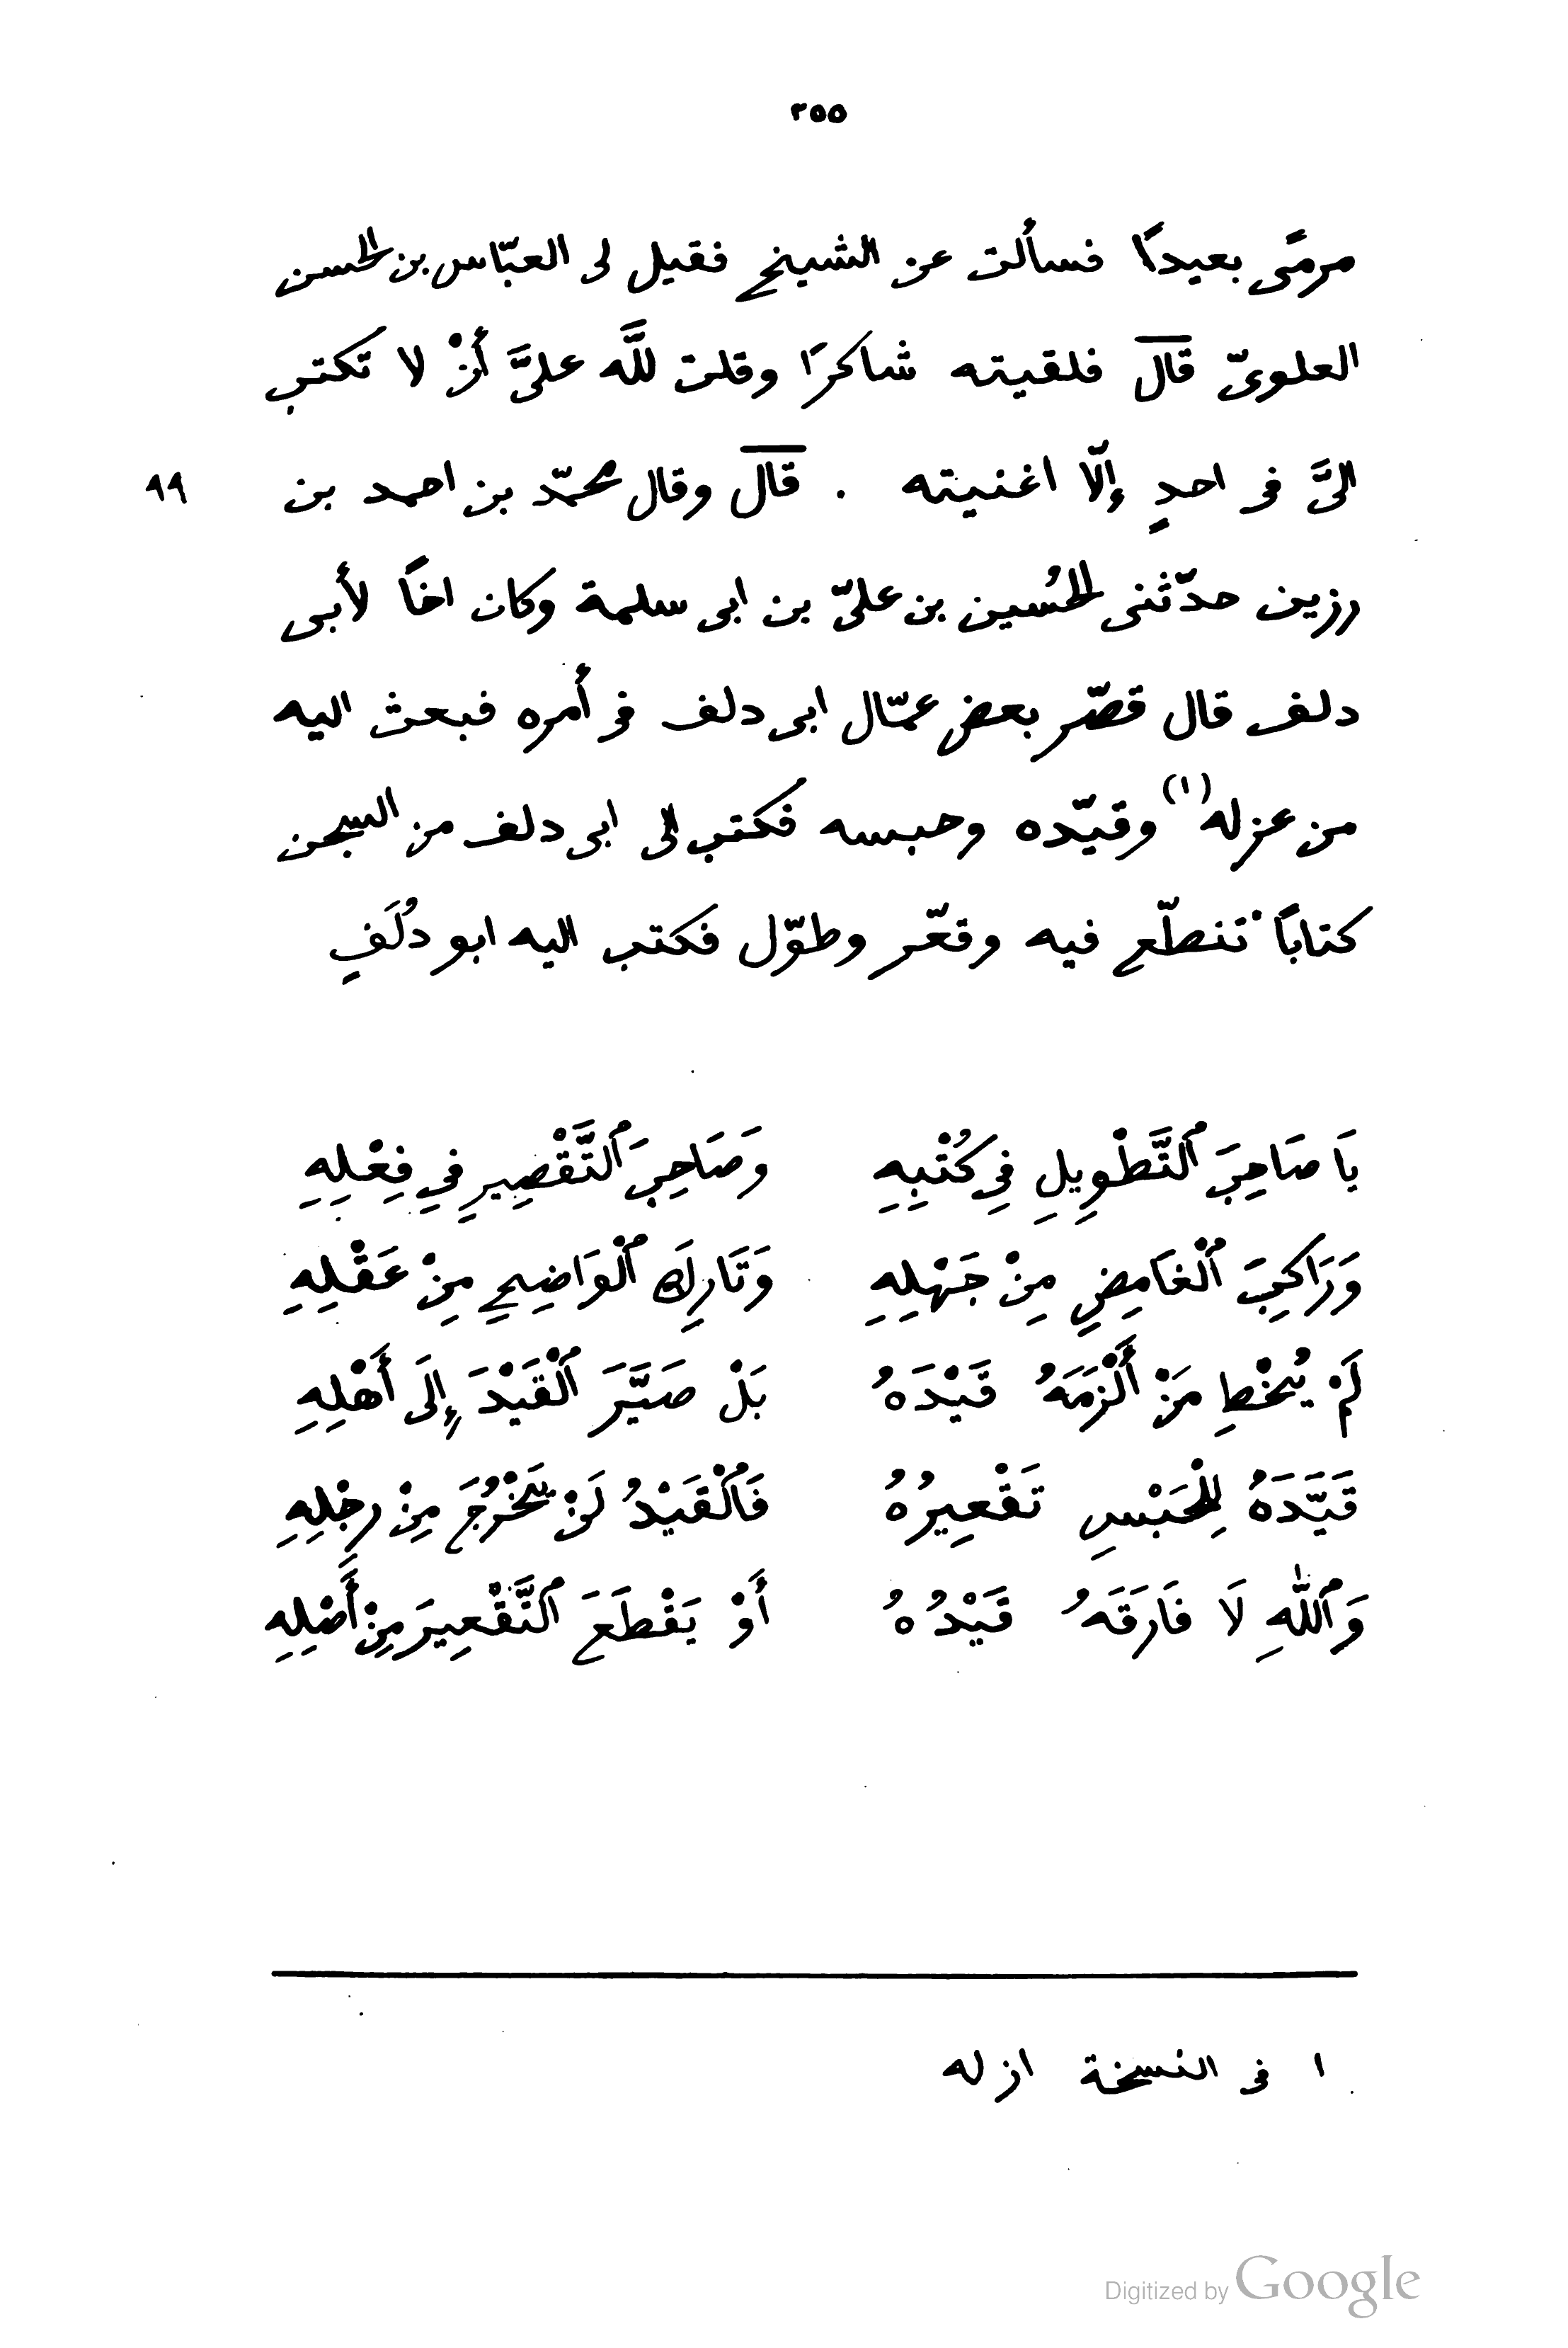 ٢٥٥
مرمًى بعيدًا فسألت عن الشيخ فقيل لى العبّاس بن الحسن
العلوىّ قال فلقيته شاكرًا وقلت للّه علىَّ أنْ لا تكتب
الىَّ فى احدٍ إلّا اغنيته . قال وقال محمّد بن احمد بن ٩٩
رزين حدّثنى الحُسين بن علىّ بن ابى سلمة وكان اخًا لأبى
دلف قال قصّر بعض عمّال ابى دلف فى أمره فبعث اليه
من عزله (١) وقيّده وحبسه فكتب الى ابى دلف من السجن
كتابًا تنطّع فيه وقعّر وطوّل فكتب اليه ابو دُلَفٍ
يَا صَاحِبَ ٱلتَّطْوِيلِ فِي كُتْبِهِ وَصَاحِبَ ٱلتَّقْصِيرِ فِي فِعْلِهِ
وَرَاكِبَ ٱلْغَامِضِ مِنْ جَهْلِهِ وَتَارِكَ ٱلْوَاضِحِ مِنْ عَقْلِهِ
لَمْ يُخْطِ مَنْ أَلْزَمَهُ قَيْدَهُ بَلْ صَيَّرَ ٱلْقَيْدَ إِلَى أَهْلِهِ
قَيَّدَهُ لِلْحَبْسِ تَقْعِيرُهُ فَٱلْقَيْدُ لَنْ يَخْرُجَ مِنْ رِجْلِهِ
وَٱللّٰهِ لَا فَارَقَهُ قَيْدُهُ أَوْ يَقْطَعَ ٱلتَّقْعِيرَ مِنْ أَصْلِهِ
١ فى النسخة ازله
Digitized by Google